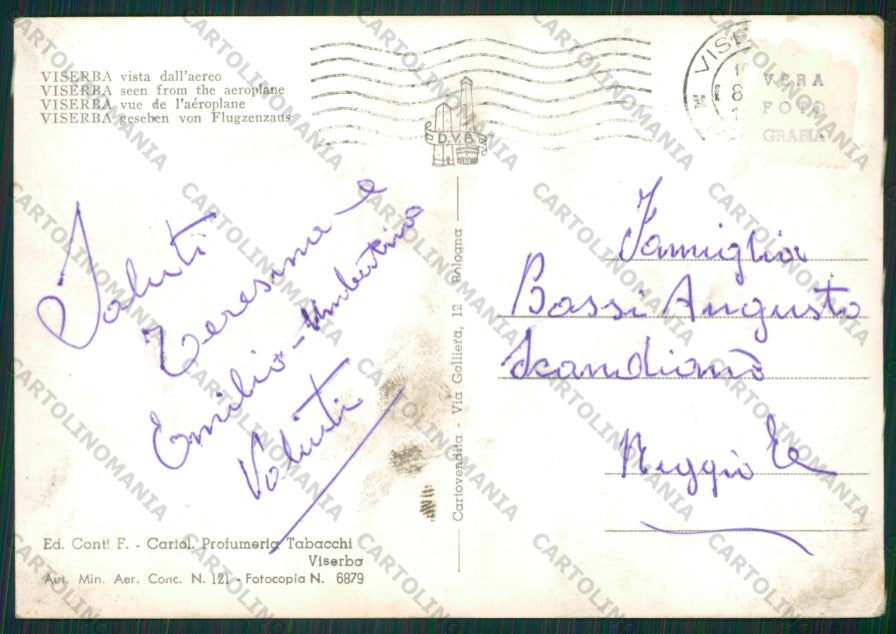 VISERBA vista dall'aereo
VISERBA seen from the aeroplane
VISERBA vue de l'aéroplane
VISERBA geseben von Flugzenzaus
D.V.B.
VERA
FOTO
GRAFIA
Saluti
Teresina e
Emilio - Umbertino
Famiglia
Bassi Augusto
Scandiano
Reggio Em
Cartovendita - Via Galliera, 12 Bologna
Ed. Conti F. - Cartol. Profumeria Tabacchi
Viserba
Aut. Min. Aer. Conc. N. 121 - Fotocopia N. 6879
CARTOLINOMANIA